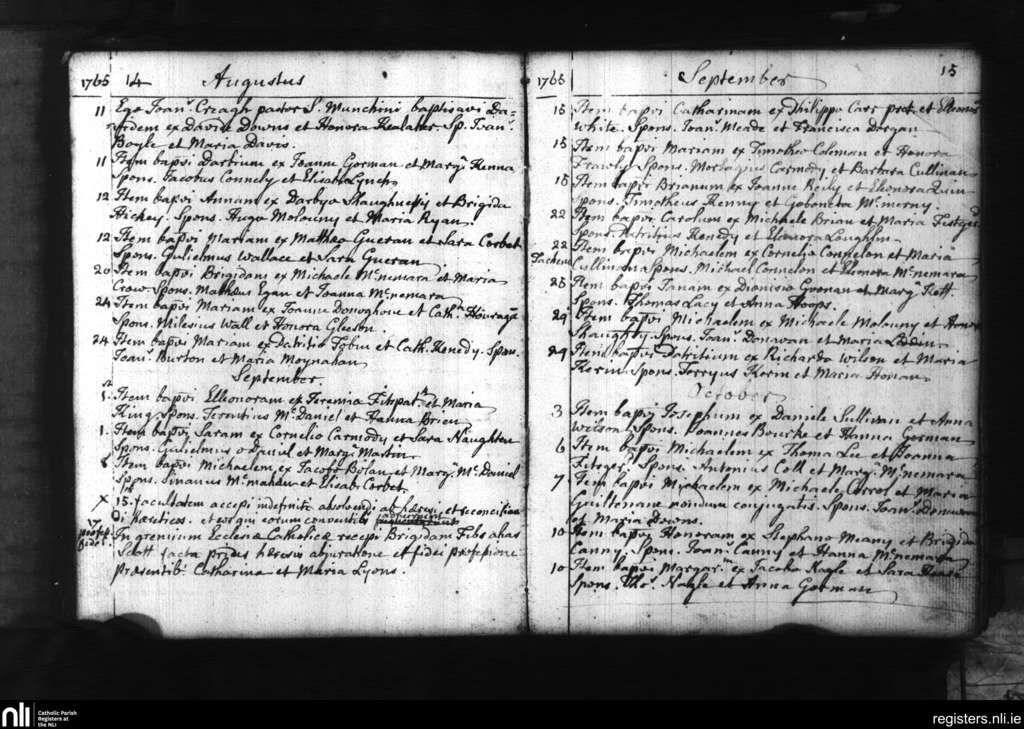 1765 14 Augustus
11 Ego Joan.s Creagh pastor S. Munchini baptisavi Da=
videm ex Davide Downs et Honora Sp. Joan.s
Boyle et Maria Davis.
11 Item bapvi Darbium ex Joanne Gorman et Marg.t Kenna
Spons. Jacobus Connely et Elisab. Lynch
12 Item bapvi Annam ex Darbyo Shaughnessy et Brigida
Hickey. Spons. Hugo Molouny et Maria Ryan.
12 Item bapvi Mariam ex Mattheo Gueran et Sara Corbet
Spons. Gulielmus Wallace et Sara Gueran
20 Item bapvi Brigidam ex Michaele Mcnemara et Maria
Crow. Spons. Matheus Egan et Joanna Mcnemara
24 Item bapvi Mariam ex Joanne Donoghoue et Cath.
Spons. Milesius Wall et Honora Gleeson.
24 Item bapvi Mariam ex Patritio Tobin et Cath. Kenedy. Spon.
Joan.s Burton et Maria Moynahan
September.
1. Item bapvi Elleonoram ex Jeremia Fitzpat. et Maria
King. Spons. Terentius Mc Daniel et Hanna Brien
1. Item bapvi Saram ex Cornelio Carmody et Sara Naughten
Spons. Gulielmus o Daniel et Marg.t Martin
8 Item bapvi Michaelem ex Jacobo Bolan et Marg.t Mc Daniel
Spons. Mcmahon et Elisab. Corbet
X 15. facultatem accepi indefinite absolvendi ab hæresi, et reconcilian
di hæreticos. et eorum
17
profes.
fidei.
In gremium Ecclesiæ Catholicæ recepi Brigidam Fibs alias
Scott facta prides hæresis abjuratione et fidei professione
præsentib. Catharina et Maria Lyons.
1765 September 15
15 Item bapvi Catharinam ex Philippo Carr et
White. Spons. Joan.s Meade et Francisca Dorgan
15 Item bapvi Mariam ex Timotheo Colman et Honora
Frawley Spons. Carmody et Barbara Cullinan
15 Item bapvi Brianum ex Joanne Reily et Eleonora Quin
Spons. Timotheus Kenny et Mcnerny.
22 Item bapvi Carolum ex Michaele Brian et Maria
Spons. Patritius Kenedy et Eleonora Loughlin
22 Item bapvi Michaelem ex Cornelio Connelon et Maria
Cullinan Spons. Michael Connelon et Eleonora Mcnemara
25 Item bapvi ex Dionisio et Marg.t
Spons. Thomas Lacy et Anna
29 Item bapvi Michaelem ex Michaele Molouny et Honora
Shaughnesy. Spons. Joan.s Donavan et Maria
29 Item bapvi Patritium ex Richardo Wilson et Maria
Kerin Spons. Kerin et Maria Honan
October
3 Item bapvi Josephum ex Daniele Sullivan et Anna
Wilson Spons. Joannes Bourke et Hanna Gorman
6 Item bapvi Michaelem ex Thoma Lee et Joanna
Spons. Antonius Coll et Marg.t Mcnemara
7 Item bapvi Michaelem ex Michaele Carrol et Maria
nondum conjugatis. Spons. Joan.s Donnavan
et Maria Downs.
10 Item bapvi Honoram ex Stephano Meany et Brigida
Canny. Spons. Joan.s Canny et Hanna Mcnemara
10 Item bapvi Margar.m ex Jacobo Nagle et Sara
Spons. Tho.s Nagle et Anna Gorman
nli Catholic Parish
Registers at
the NLI
registers.nli.ie